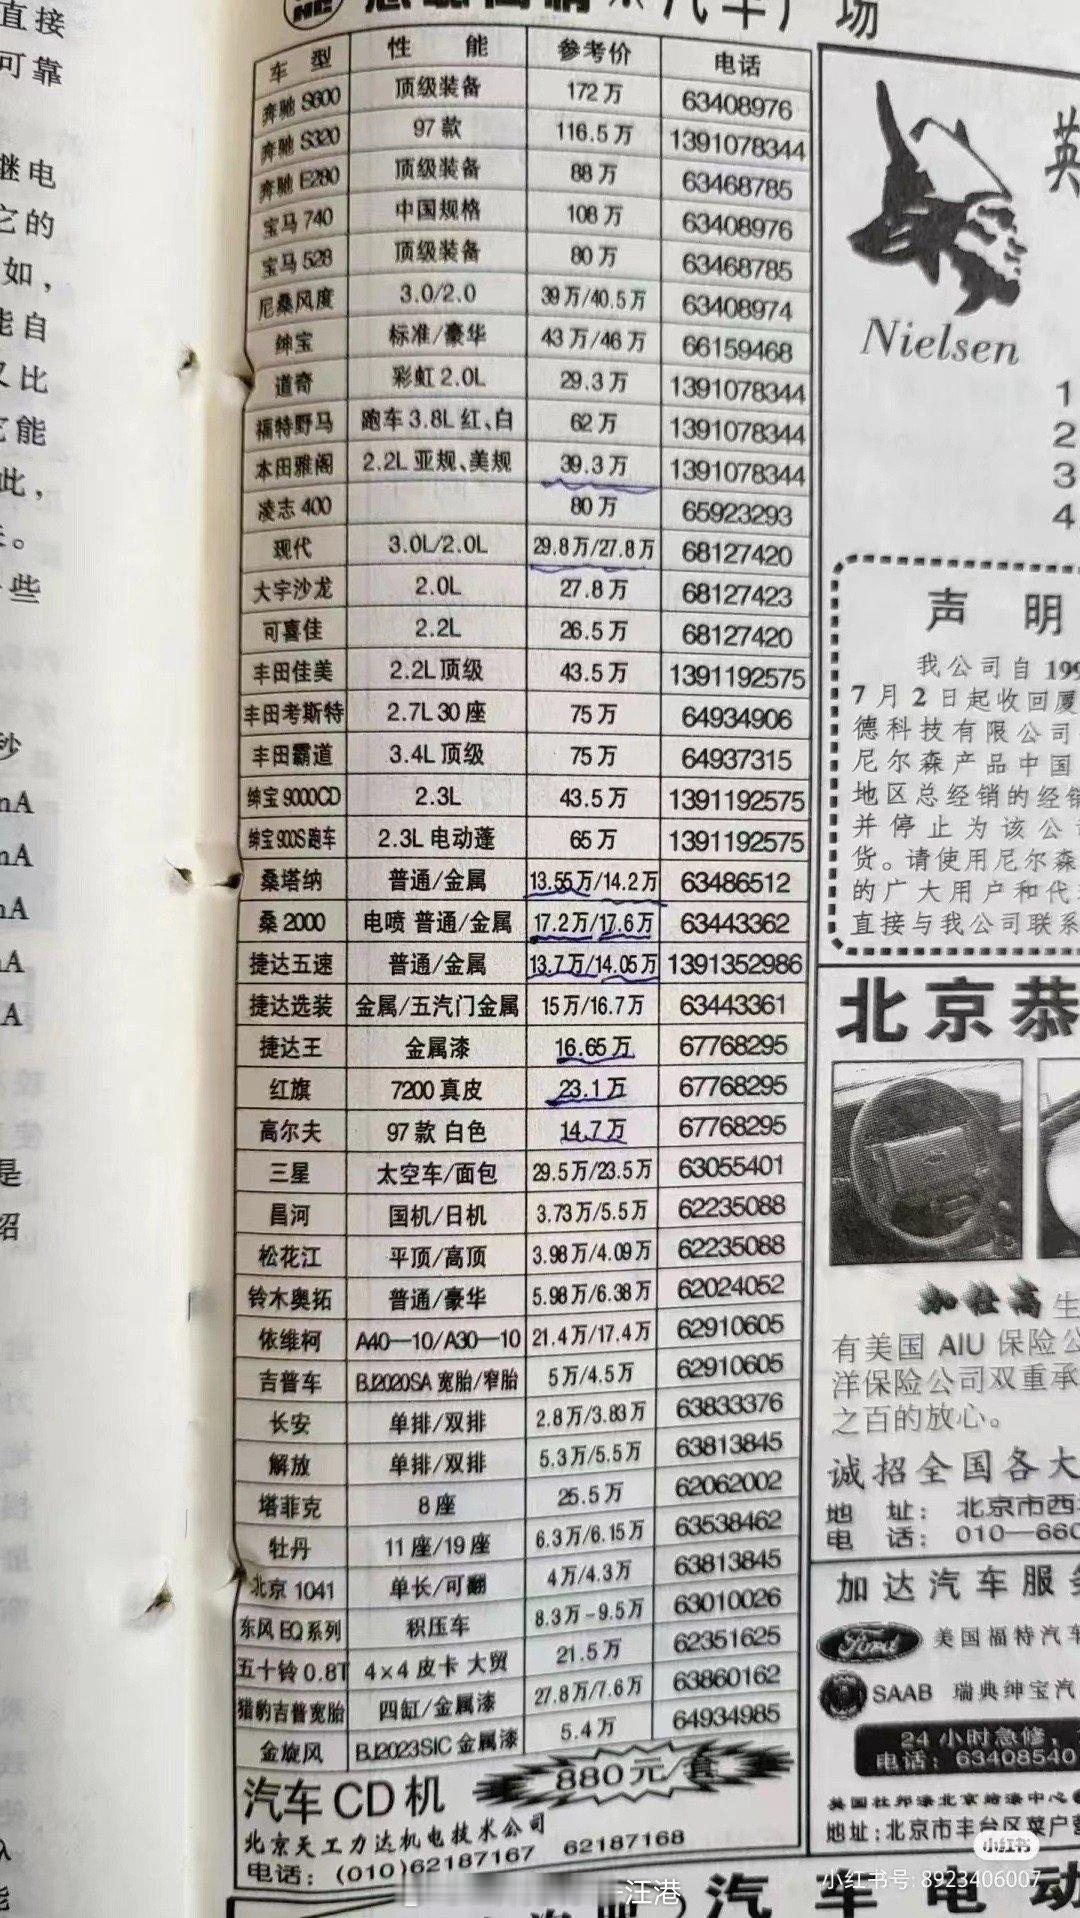 直接
可靠
继电
它的
如，
能自
又比
它能
此，
些
秒
mA
mA
mA
A
A
是
绍
汽车广场
车 型 性 能 参考价 电话
奔驰 S600 顶级装备 172万 63408976
奔驰 S320 97款 116.5万 1391078344
奔驰 E280 顶级装备 88万 63468785
宝马 740 中国规格 108万 63408976
宝马 528 顶级装备 80万 63468785
尼桑风度 3.0/2.0 39万/40.5万 63408974
绅宝 标准/豪华 43万/46万 66159468
道奇 彩虹 2.0L 29.3万 1391078344
福特野马 跑车 3.8L 红、白 62万 1391078344
本田雅阁 2.2L 亚规、美规 39.3万 1391078344
凌志 400 80万 65923293
现代 3.0L/2.0L 29.8万/27.8万 68127420
大宇沙龙 2.0L 27.8万 68127423
可喜佳 2.2L 26.5万 68127420
丰田佳美 2.2L 顶级 43.5万 1391192575
丰田考斯特 2.7L 30座 75万 64934906
丰田霸道 3.4L 顶级 75万 64937315
绅宝 9000CD 2.3L 43.5万 1391192575
绅宝 900S 跑车 2.3L 电动蓬 65万 1391192575
桑塔纳 普通/金属 13.55万/14.2万 63486512
桑 2000 电喷 普通/金属 17.2万/17.6万 63443362
捷达五速 普通/金属 13.7万/14.05万 1391352986
捷达选装 金属/五汽门金属 15万/16.7万 63443361
捷达王 金属漆 16.65万 67768295
红旗 7200 真皮 23.1万 67768295
高尔夫 97款 白色 14.7万 67768295
三星 太空车/面包 29.5万/23.5万 63055401
昌河 国机/日机 3.73万/5.5万 62235088
松花江 平顶/高顶 3.98万/4.09万 62235088
铃木奥拓 普通/豪华 5.98万/6.38万 62024052
依维柯 A40—10/A30—10 21.4万/17.4万 62910605
吉普车 BJ2020SA 宽胎/窄胎 5万/4.5万 62910605
长安 单排/双排 2.8万/3.83万 63833376
解放 单排/双排 5.3万/5.5万 63813845
塔菲克 8座 25.5万 62062002
牡丹 11座/19座 6.3万/6.15万 63538462
北京 1041 单长/可翻 4万/4.3万 63813845
东风 EQ 系列 积压车 8.3万-9.5万 63010026
五十铃 0.8T 4×4 皮卡 大贸 21.5万 62351625
猎豹吉普宽胎 四缸/金属漆 27.8万/7.6万 63860162
金旋风 BJ2023SIC 金属漆 5.4万 64934985
汽车 CD 机 880元/套
北京天工力达机电技术公司
电话：(010)62187167 62187168
英
Nielsen
1
2
3
4
声 明
我公司自 199
7月2日起收回厦
德科技有限公司
尼尔森产品中国
地区总经销的经销
并停止为该公司
货。请使用尼尔森
的广大用户和代
直接与我公司联系
北京恭
加仕高 生
有美国 AIU 保险公
洋保险公司双重承
之百的放心。
诚招全国各大
地 址：北京市西
电 话：010—660
加达汽车服务
Ford 美国福特汽车
SAAB 瑞典绅宝汽
24小时急修，
电话：63408540
地址：北京市丰台区菜户营
小红书
小红书号: 8923406007
汪港
汽车电动